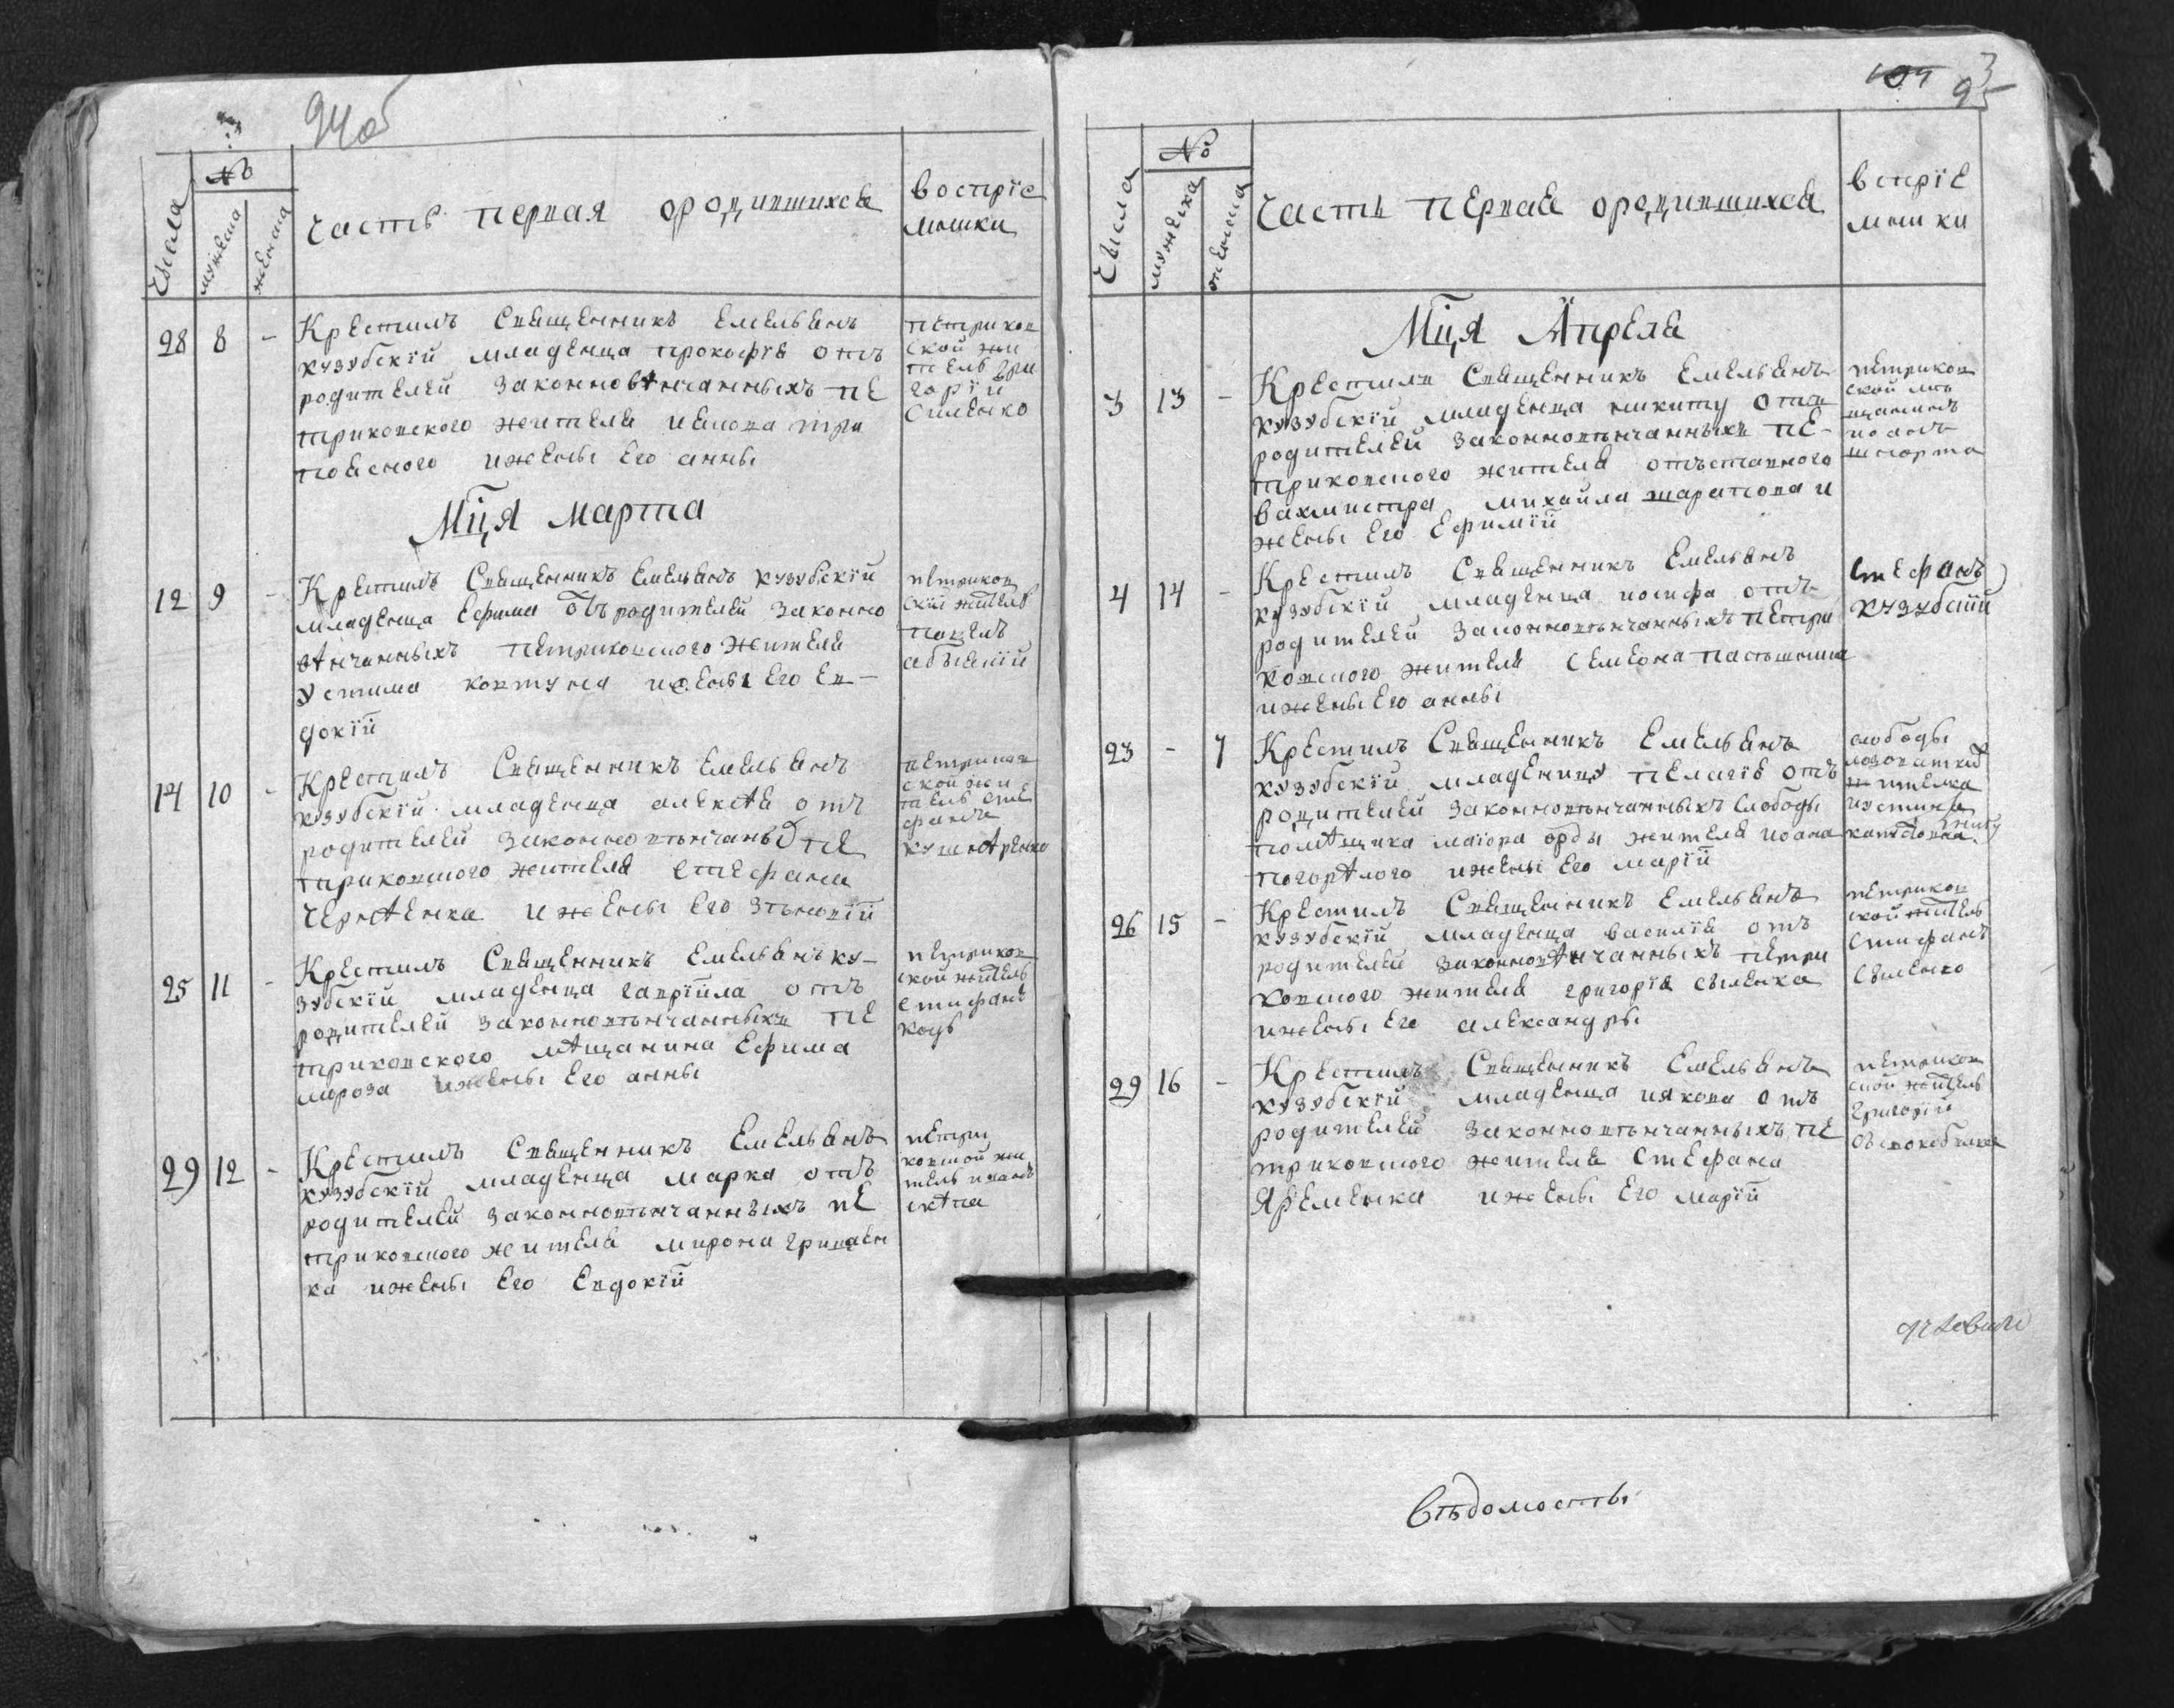 94об
№
Числа
мужеска
женска
часть первая ородившихся
воспріе
мники
28 8 -
Крестилъ Священникъ Емельянъ
кузубскїй младенца прокофїя отъ
родителей законновѣнчанныхъ пе
триковского жителя
поясного ижены Его анны
петриков
ской жи
тель гри
горїй
Мц҃я марта
12 9 -
Крестилъ Священникъ Емельянъ кузубскїй
младенца Ефима ѿъ родителей законно
вѣнчанныхъ петриковского жителя
устима ковтуна ижены Его Ев-
докїй
петриков
скїй житель
14 10 -
Крестилъ Священникъ Емельянъ
кузубскїй младенца алексѣя отъ
родителей законновѣнчаныхъ пе
триковского жителя стефана
чернѣенка ижены Его
петриков
ской жи
тель сте
фанъ
25 11 -
Крестилъ Священникъ Емельянъ ку-
зубскїй младенца гаврїйла отъ
родителей законновѣнчанныхъ пе
триковского мѣщанина Ефима
мороза ижены Его анны
петриков
ской житель
стифанъ
29 12 -
Крестилъ Священникъ Емельянъ
кузубскїй младенца марка отъ
родителей законновѣнчанныхъ пе
триковского жителя мирона грицаен
ка ижены Его Евдокїй
петри
ковской жи
тель иванъ
3
104 95
№
Числа
мужеска
женска
часть первая ородившихся
вспрїе
мники
Мц҃я Апреля
3 13 -
Крестилъ Священникъ Емельянъ
кузубскїй младенца никиту отъ
родителей законновѣнчанныхъ пе-
триковского жителя отъставного
вахмистра михайла шарапова и
жены Его Ефимїй
петриков
ской мѣ
щанинъ
иоанъ
4 14 -
Крестилъ Священникъ Емельянъ
кузубскїй младенца иосифа отъ
родителей законновѣнчанныхъ петри
ковского жителя семеона
ижены Его анны
стефанъ
кузубскїй
23 - 7
Крестилъ Священникъ Емельянъ
кузубскїй младеницу пелагїю отъ
родителей законновѣнчанныхъ слободы
помѣщика маїора орды жителя иоана
погорѣлого ижены Его марїй
слободы
жителка
иустина
26 15 -
Крестилъ Священникъ Емельянъ
кузубскїй младенца василїя отъ
родителей законновѣнчанныхъ петри
ковского жителя григорїя
ижены Его александры
петриков
ской житель
стифанъ
29 16 -
Крестилъ Священникъ Емельянъ
кузубскїй младенца иякова отъ
родителей законновѣнчанныхъ пе
триковского жителя стефана
Яременка ижены Его марїй
петриков
ской житель
григорїй
вѣдомость